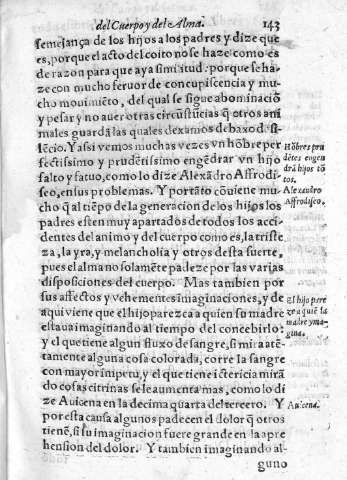 del Cuerpo y del Alma. 143
semejança de los hijos a los padres y dize que
es, porque el acto del coito no se haze como es
de razon para que aya similitud: porque se ha-
ze con mucho feruor de concupiscencia y mu-
cho mouimiẽto, del qual se sigue abominaciõ
y pesar y no auer otras circũstãcias q̃ otros ani
males guardã las quales dexamos debaxo d̃ si-
lẽcio. Y assi vemos muchas vezes vn hõbre per
fectissimo y prudẽtissimo engẽdrar vn hijo
falto y fatuo, como lo dize Alexãdro Affrodi-
seo, en sus problemas. Y portãto cõuiene mu-
cho q̃ al tiẽpo de la generacion de los hijos los
padres esten muy apartados de todos los acci-
dentes del animo y del cuerpo como es, la triste
za, la yra, y melancholia y otros desta suerte,
pues el alma no solamẽte padeze por las varias
disposiciones del cuerpo. Mas tambien por
sus affectos y vehementes imaginaciones, y de
aqui viene que el hijo parezca a quien su madre
estaua imaginando al tiempo del concebirlo:
y el que tiene algun fluxo de sangre, si mira atẽ-
tamente alguna cosa colorada, corre la sangre
con mayor impetu, y el que tiene ictericia mirã
do cosas citrinas se le aumenta mas, como lo di
ze Auicena en la decima quarta del tercero. Y
por esta causa algunos padecen el dolor q̃ otros
tienẽ, si su imaginacion fuere grande en la apre
hension del dolor. Y tambien imaginando al-
guno
Hõbres pru
dẽtes engen
drã hijos tõ
tos.
Alexandro
Affrodiseo.
El hijo pare
ze a quiẽ la
madre yma-
gina.
Auicena.